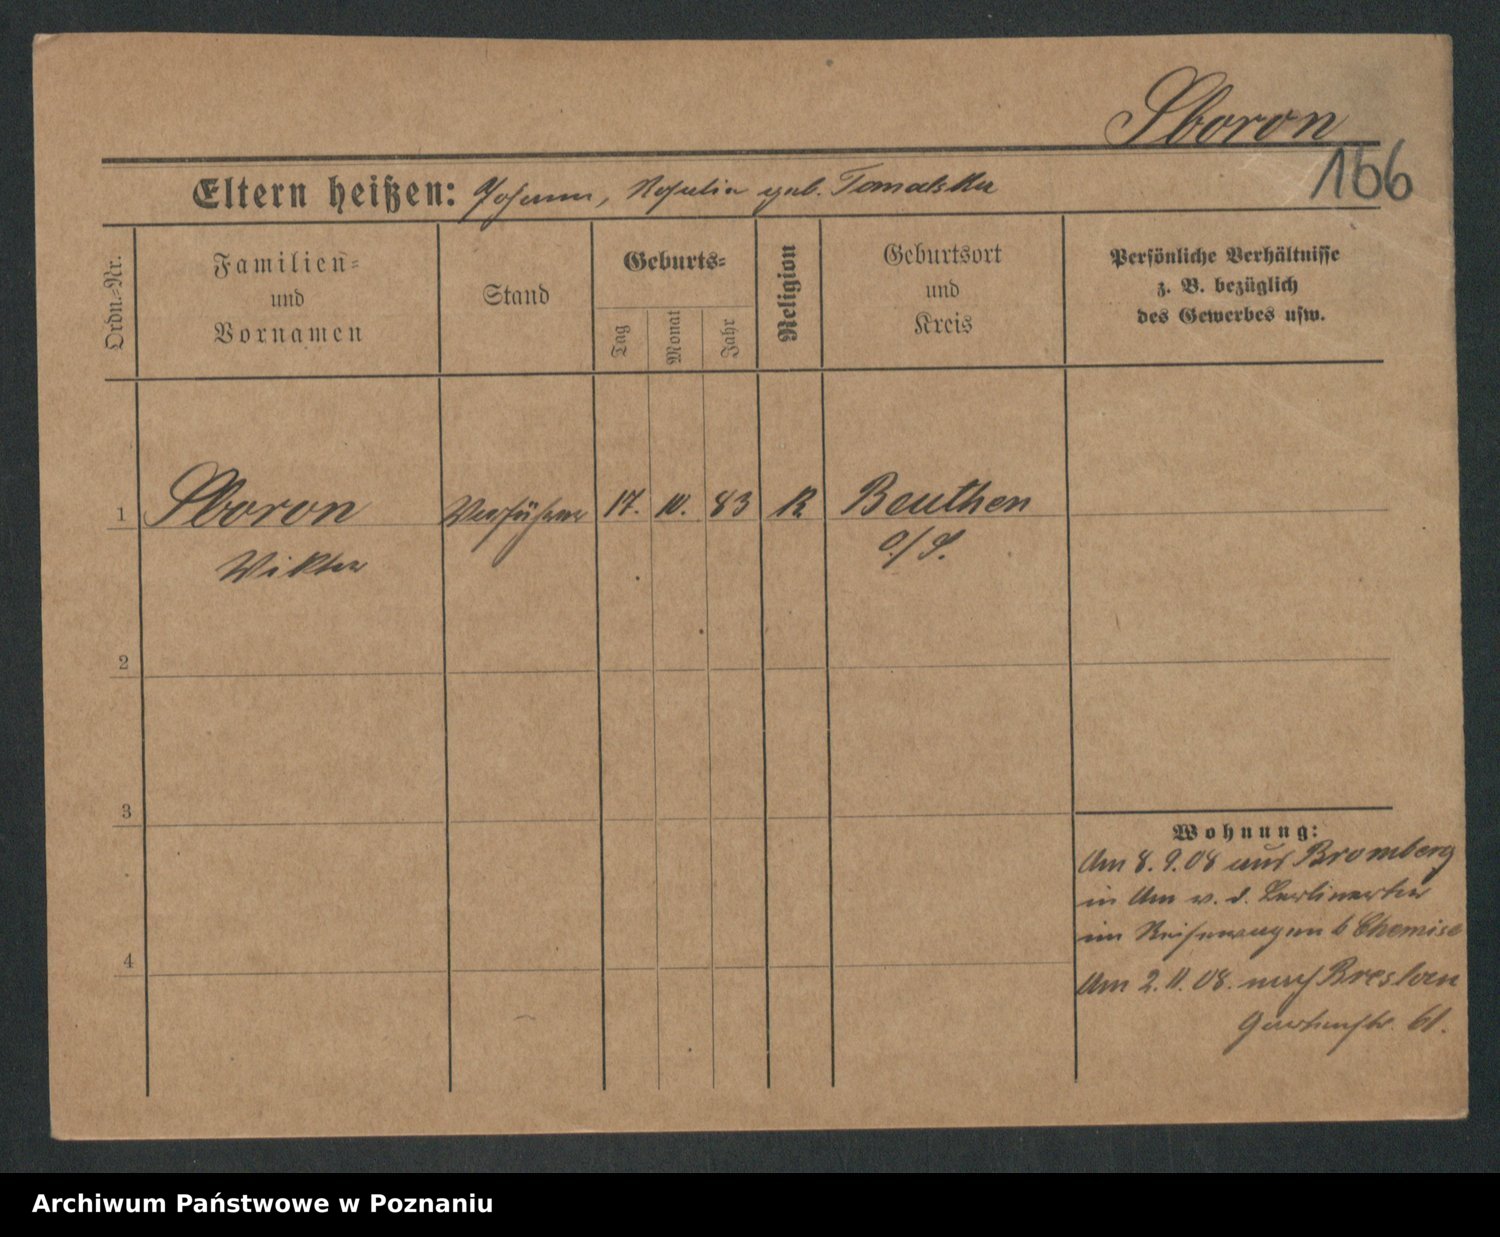 Sboron
166
Eltern heißen: Johann, Rosalia geb. Tomalska
Ordn.-Nr.
Familien-
und
Vornamen
Stand
Geburts-
Tag
Monat
Jahr
Religion
Geburtsort
und
Kreis
Persönliche Verhältnisse
z. B. bezüglich
des Gewerbes usw.
1
Sboron
Vorführer
17.
10.
83
K
Beuthen
Viktor
O/S.
2
3
4
Wohnung:
Am 8.9.08 aus Bromberg
in Am v. d. Berlinertor
im Reisewagen b
Am 2.11.08. nach Breslau
Gartenstr. 61.
Archiwum Państwowe w Poznaniu